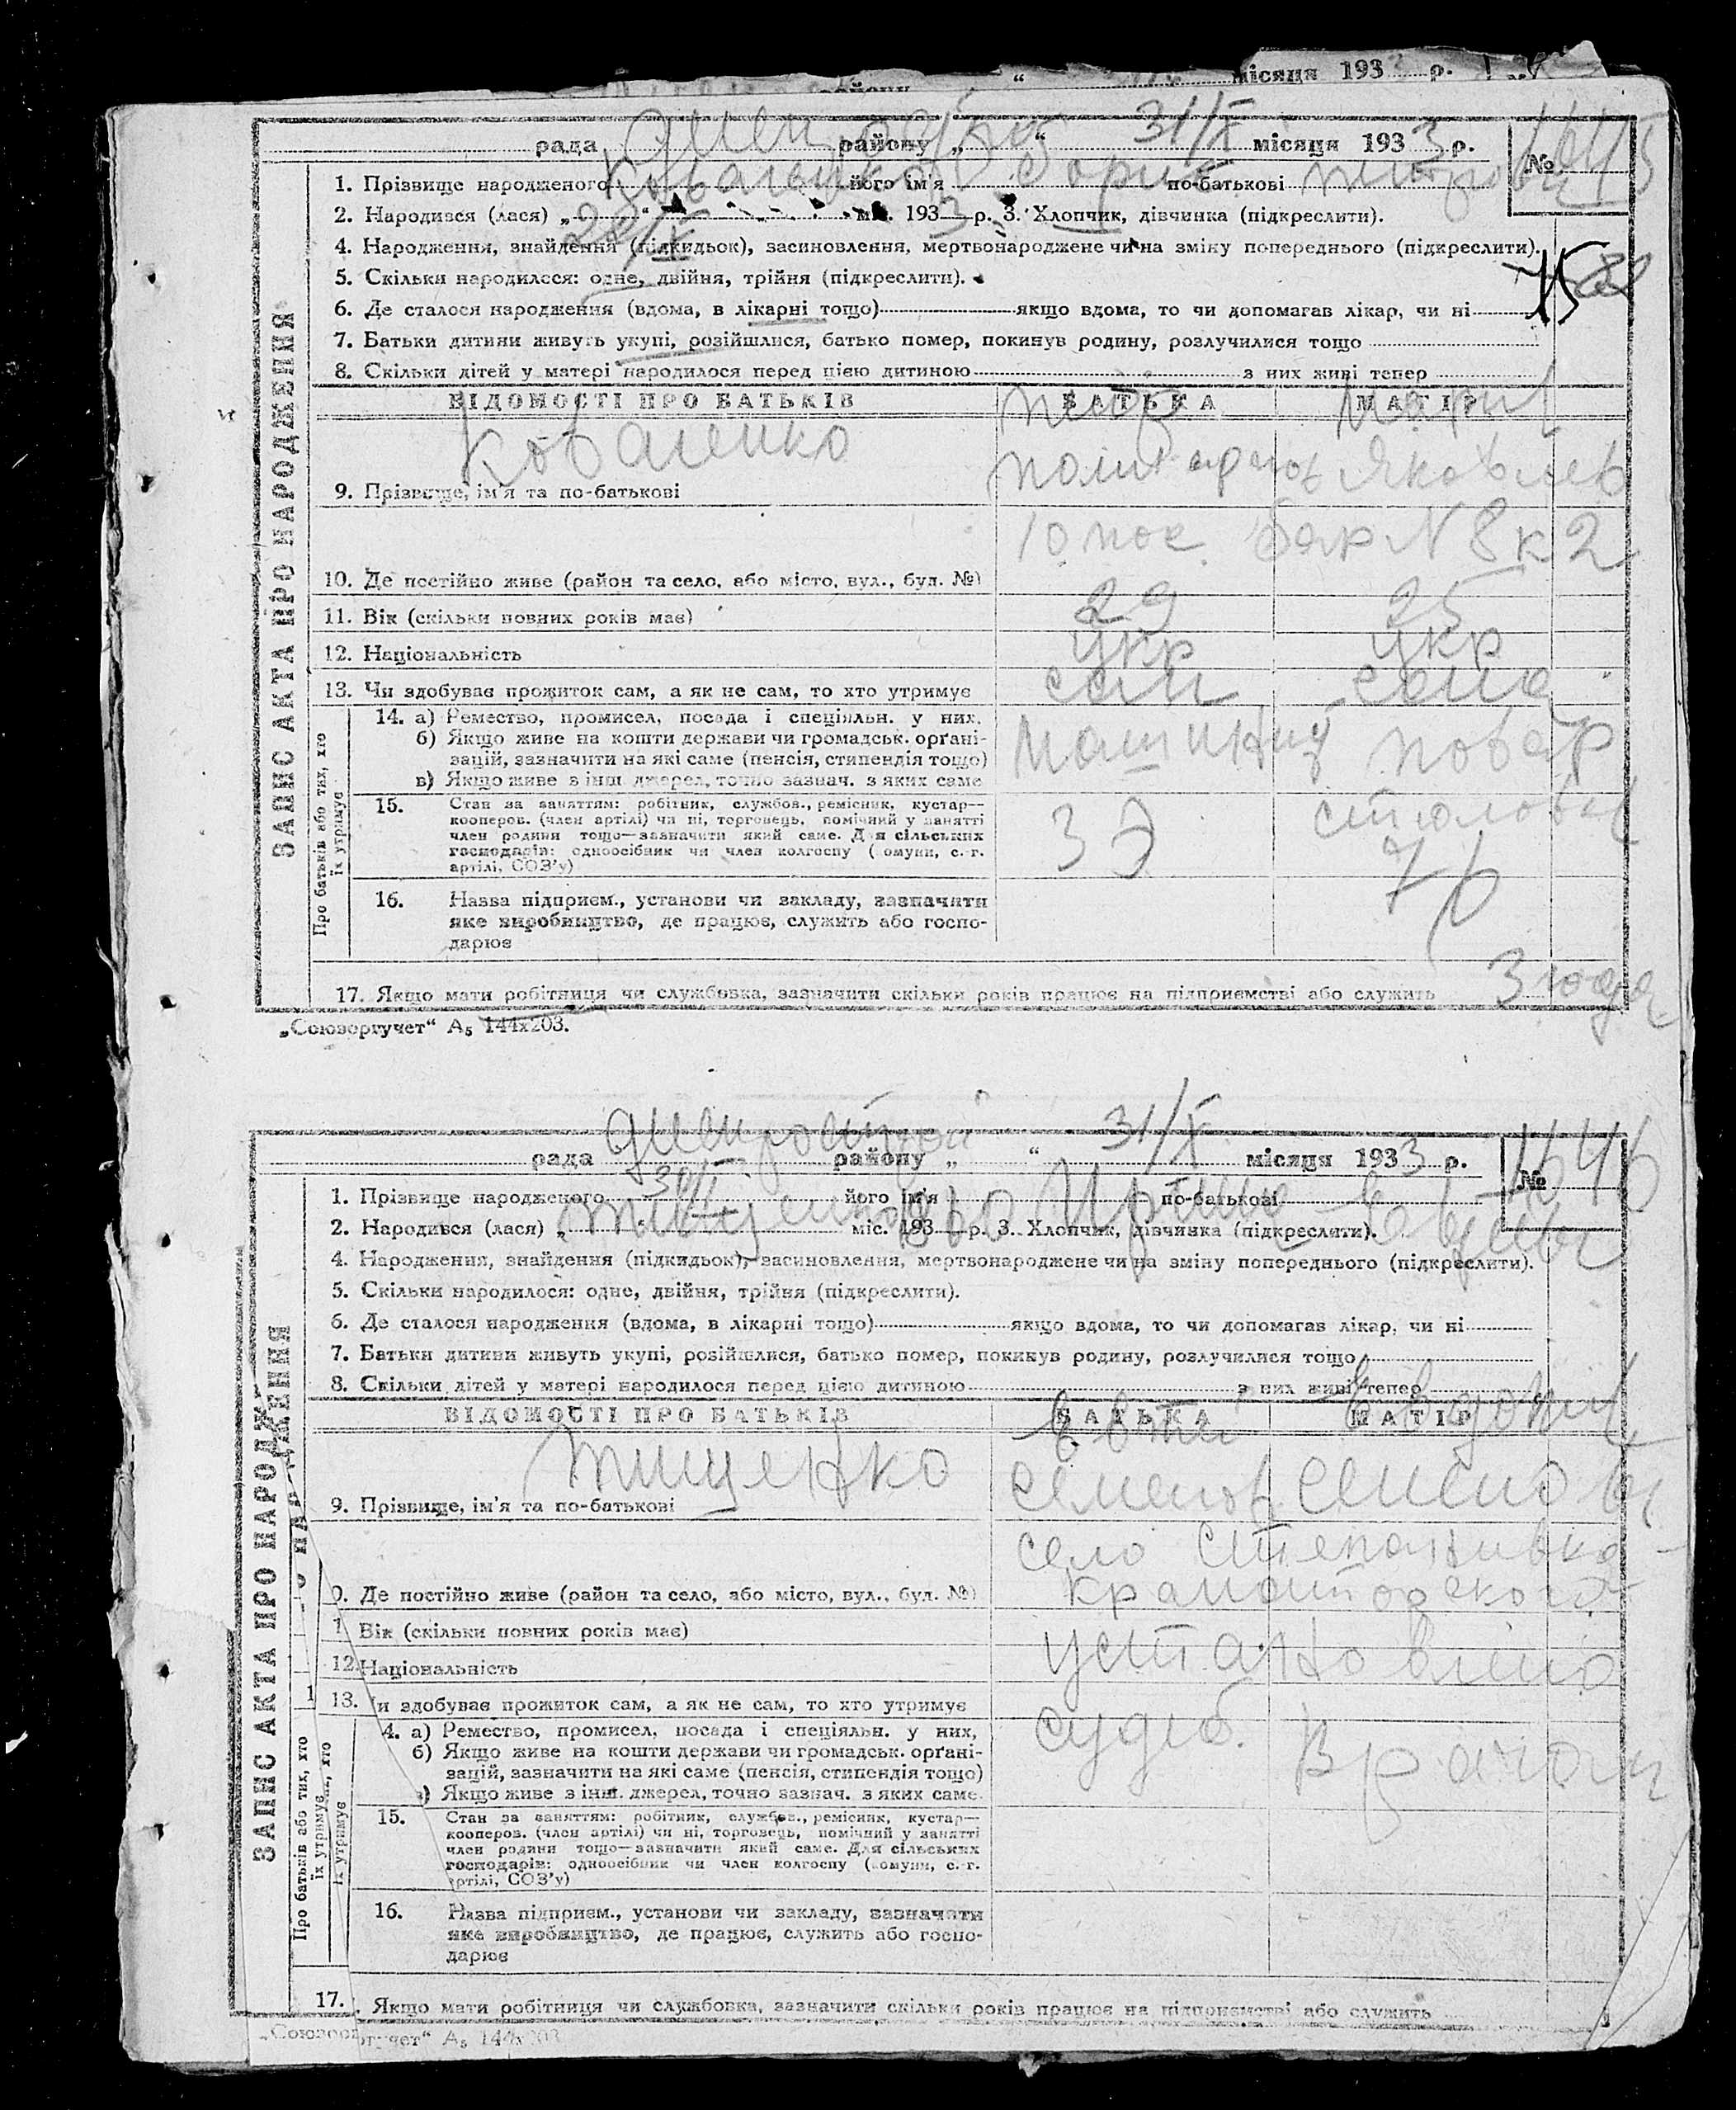 місяця 193 р.
рада району „ “ 31/X місяця 1933 р. № 1645
1. Прізвище народженого Коваленко його ім'я Борис по-батькові
2. Народився (лася) „22/X“ міс. 1933 р. 3. Хлопчик, дівчинка (підкреслити).
4. Народження, знайдення (підкидьок), засиновлення, мертвонароджене чи на зміну попереднього (підкреслити).
5. Скільки народилося: одне, двійня, трійня (підкреслити).
6. Де сталося народження (вдома, в лікарні тощо) якщо вдома, то чи допомагав лікар, чи ні
7. Батьки дитини живуть укупі, розійшлися, батько помер, покинув родину, розлучилися тощо
8. Скільки дітей у матері народилося перед цією дитиною з них живі тепер
ЗАПИС АКТА ПРО НАРОДЖЕННЯ
ВІДОМОСТІ ПРО БАТЬКІВ БАТЬКА МАТІР
Коваленко
9. Прізвище, ім'я та по-батькові Яковлев
10 пос. бар N 8 к 2
10. Де постійно живе (район та село, або місто, вул., буд. №)
11. Вік (скільки повних років має) 29 25
12. Національність укр укр
13. Чи здобуває прожиток сам, а як не сам, то хто утримує сам сама
Про батьків або тих, хто їх утримує
14. а) Ремество, промисел, посада і спеціяльн. у них.
б) Якщо живе на кошти держави чи громадськ. орґані-
зацій, зазначити на які саме (пенсія, стипендія тощо) машинист повар
в) Якщо живе з інш. джерел, точно зазнач. з яких саме
15. Стан за заняттям: робітник, службов., ремісник, кустар—
кооперов. (член артілі) чи ні, торговець, помічний у занятті
член родини тощо—зазначити який саме. Для сільських
господарів: одноосібник чи член колгоспу (комуни, с.-г.
артілі, СОЗ'у)
столовая
16. Назва підприєм., установи чи закладу, зазначити
яке виробництво, де працює, служить або госпо-
дарює
17. Якщо мати робітниця чи службовка, зазначити скільки років працює на підприємстві або служить 3 года
„Союзоргучет“ А5 144х203.
рада Днепрострой району „ “ 31/X місяця 1933 р. № 1646
1. Прізвище народженого його ім'я по-батькові
Тищенко Ирина
2. Народився (лася) „ міс. 193 р. 3. Хлопчик, дівчинка (підкреслити).
4. Народження, знайдення (підкидьок), засиновлення, мертвонароджене чи на зміну попереднього (підкреслити).
5. Скільки народилося: одне, двійня, трійня (підкреслити).
6. Де сталося народження (вдома, в лікарні тощо) якщо вдома, то чи допомагав лікар, чи ні
7. Батьки дитини живуть укупі, розійшлися, батько помер, покинув родину, розлучилися тощо
8. Скільки дітей у матері народилося перед цією дитиною з них живі тепер
ЗАПИС АКТА ПРО НАРОДЖЕННЯ
ВІДОМОСТІ ПРО БАТЬКІВ БАТЬКА МАТІР
Тищенко
9. Прізвище, ім'я та по-батькові Семенов Семенов
село Степановка
0. Де постійно живе (район та село, або місто, вул., буд. №) Краматорского
1 Вік (скільки повних років має) установлено
12. Національність
13. Чи здобуває прожиток сам, а як не сам, то хто утримує
Про батьків або тих, хто їх утримує
4. а) Ремество, промисел, посада і спеціяльн. у них, судеб. врачом
б) Якщо живе на кошти держави чи громадськ. орґані-
зацій, зазначити на які саме (пенсія, стипендія тощо)
в) Якщо живе з інш. джерел, точно зазнач. з яких саме.
15. Стан за заняттям: робітник, службов., ремісник, кустар—
кооперов. (член артілі) чи ні, торговець, помічний у занятті
член родини тощо—зазначити який саме. Для сільських
господарів: одноосібник чи член колгоспу (комуни, с.-г.
артілі, СОЗ'у)
16. Назва підприєм., установи чи закладу, зазначити
яке виробництво, де працює, служить або госпо-
дарює
17. Якщо мати робітниця чи службовка, зазначити скільки років працює на підприємстві або служить
„Союзоргучет“ А5 144х203